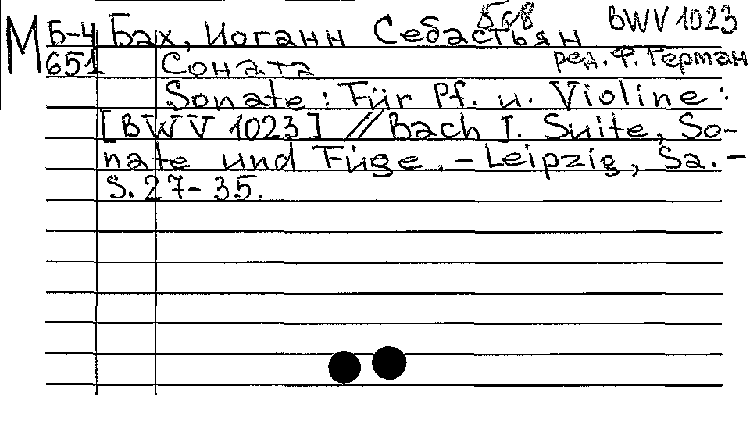 М Б-4 Бах, Иоганн Себастьян BWV 1023
651 Соната ред. Ф. Герман
Sonate: Für Pf. u. Violine:
[BWV 1023] // Bach I. Suite, So-
nate und Füge. - Leipzig, Sa. -
S. 27-35.